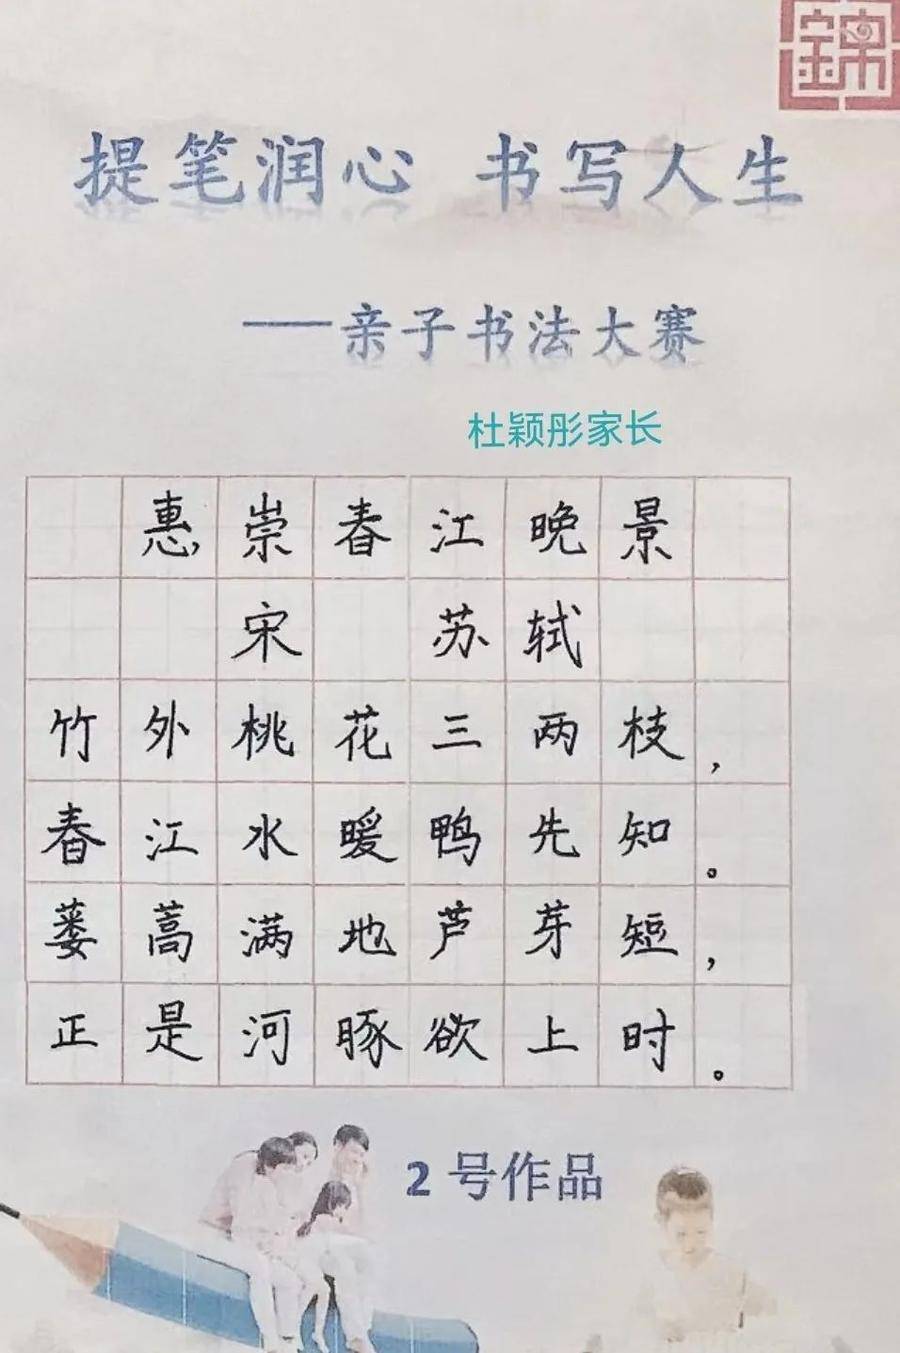 錦
提笔润心 书写人生
——亲子书法大赛
杜颖彤家长
惠崇春江晚景
宋 苏轼
竹外桃花三两枝，
春江水暖鸭先知。
蒌蒿满地芦芽短，
正是河豚欲上时。
2号作品